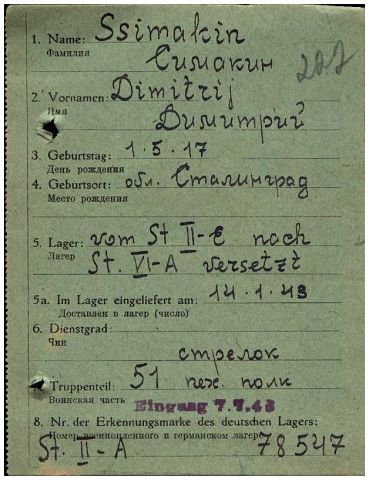 1. Name: Ssimakin
Фамилия Симакин
202
2. Vornamen: Dimitrij
Имя Димитрий
3. Geburtstag: 1.5.17
День рождения
4. Geburtsort: обл. Сталинград
Место рождения
5. Lager: vom St II-E nach
Лагер St. VI-A versetzt
5a. Im Lager eingeliefert am: 14.1.43
Доставлен в лагер (число)
6. Dienstgrad:
Чин
стрелок
Truppenteil: 51 пех. полк
Воинская часть Eingang 7.7.43
8. Nr. der Erkennungsmarke des deutschen Lagers:
Номер военнопленного в германском лагере
St. II-A 78547